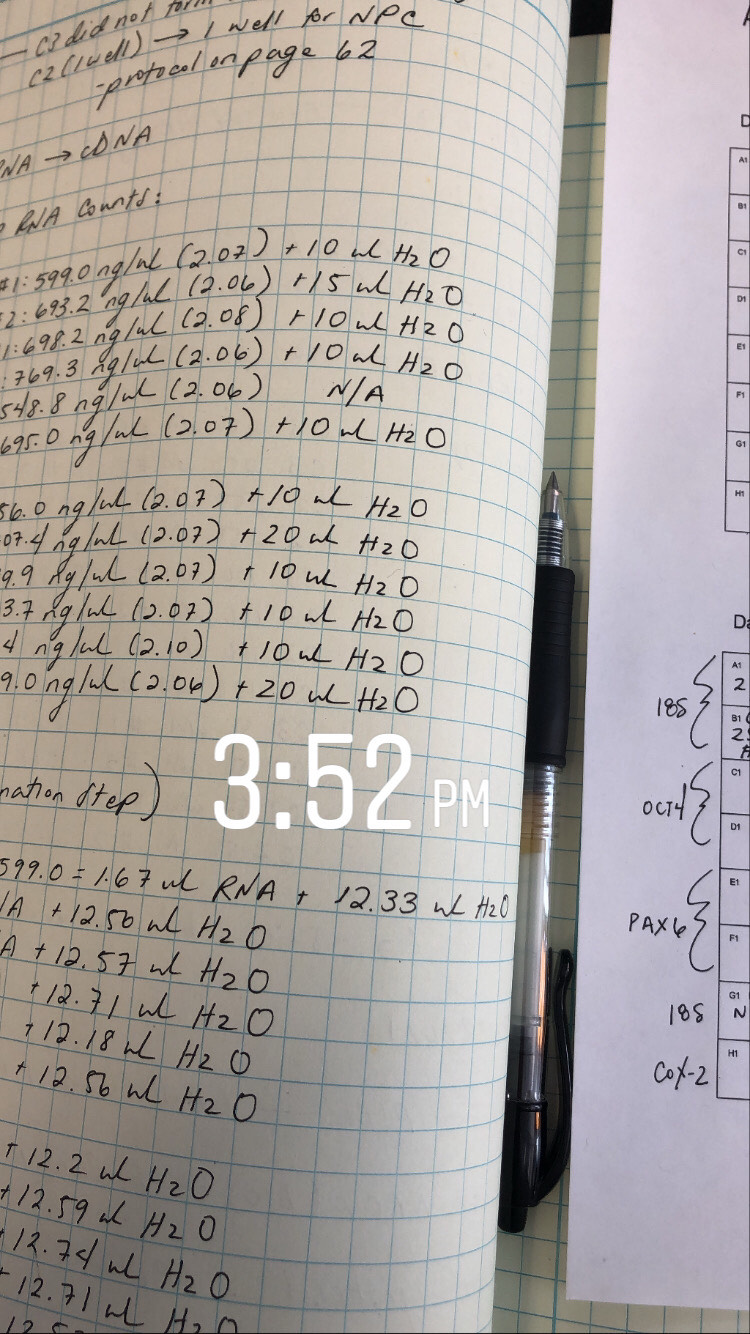 — C3 did not form
C2 (1 well) → 1 well for NPC
-protocol on page 62
NA → cDNA
RNA Counts:
#1: 599.0 ng/ul (2.07) + 10 ul H2O
2: 693.2 ng/ul (2.06) +15 ul H2O
1: 698.2 ng/ul (2.08) + 10 ul H2O
: 769.3 ng/ul (2.06) + 10 ul H2O
548.8 ng/ul (2.06) N/A
695.0 ng/ul (2.07) +10 ul H2O
56.0 ng/ul (2.07) +10 ul H2O
07.4 ng/ul (2.07) +20 ul H2O
9.9 ng/ul (2.07) + 10 ul H2O
3.7 ng/ul (2.07) + 10 ul H2O
4 ng/ul (2.10) +10 ul H2O
9.0 ng/ul (2.06) + 20 ul H2O
3:52 PM
nation Step)
599.0 = 1.67 ul RNA + 12.33 ul H2O
A + 12.56 ul H2O
A + 12.57 ul H2O
+ 12.71 ul H2O
+ 12.18 ul H2O
+ 12.56 ul H2O
+ 12.2 ul H2O
+ 12.59 ul H2O
+ 12.74 ul H2O
+ 12.71 ul H2O
H2O
D
A1
B1
C1
D1
E1
F1
G1
H1
Da
18S
A1
2
B1
2
OCT4
C1
D1
PAX6
E1
F1
18S
G1
N
COX-2
H1